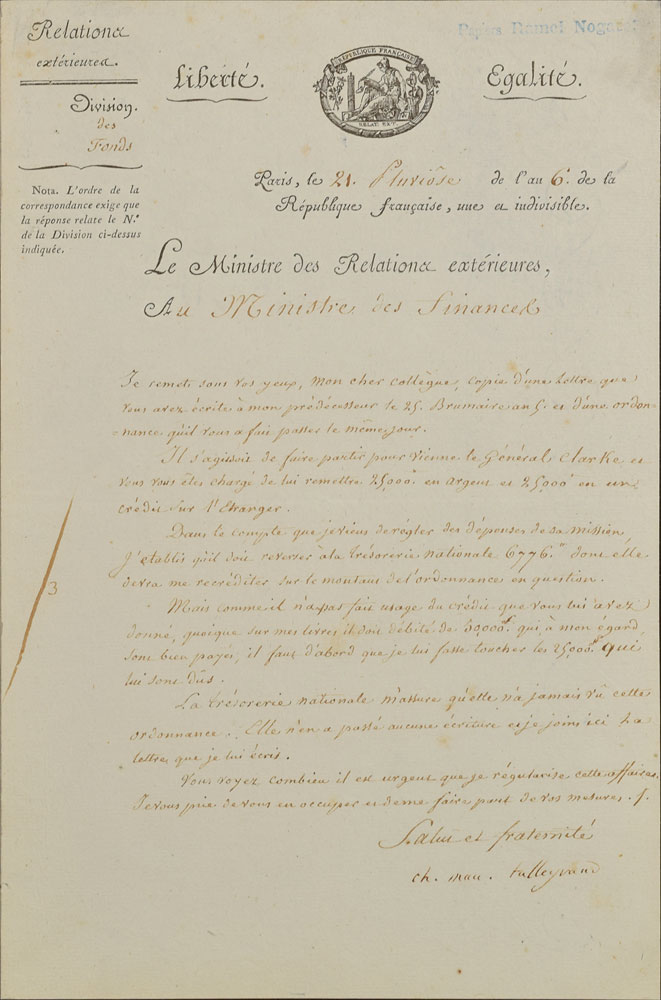 Relations
extérieures.
Division
des
Fonds
Nota. L'ordre de la
correspondance exige que
la réponse relate le N.º
de la Division ci-dessus
indiquée.
Papiers Ramel Nogaret
Liberté.
RÉPUBLIQUE FRANÇAISE
RELAT. EXT.
Egalité.
Paris, le 21. Pluviôse de l'an 6.e de la
République française, une et indivisible.
Le Ministre des Relations extérieures,
Au Ministre des Finances
Je remets sous vos yeux, mon cher collègue, copie d'une Lettre que
vous avez écrite à mon prédécesseur le 25. Brumaire an 5. et d'une ordon-
nance qu'il vous a fait passer le même jour.
Il s'agissoit de faire partir pour Vienne le Général Clarke et
vous vous êtes chargé de lui remettre 25,000.# en argent et 25,000.# en un
crédit sur l'Etranger.
Dans le compte que je viens de régler des dépenses de sa mission,
J'établis qu'il doit reverser à la trésorerie nationale 6776.# dont elle
devra me recréditer sur le montant de l'ordonnances en question.
3
Mais comme il n'a pas fait usage du crédit que vous lui avez
donné, quoique sur mes livres il soit débité de 50000.# qui à mon égard
sont bien payés, il faut d'abord que je lui fasse toucher les 25,000.# qui
lui sont dûs.
La trésorerie nationale m'assure qu'elle n'a jamais vû cette
ordonnance. Elle n'en a passé aucune écriture et je joins ici la
lettre que je lui écris.
Vous voyez combien il est urgent que je régularise cette affaire.
Je vous prie de vous en occuper et de me faire part de vos mesures.
Salut et fraternité
ch. mau. talleyrand